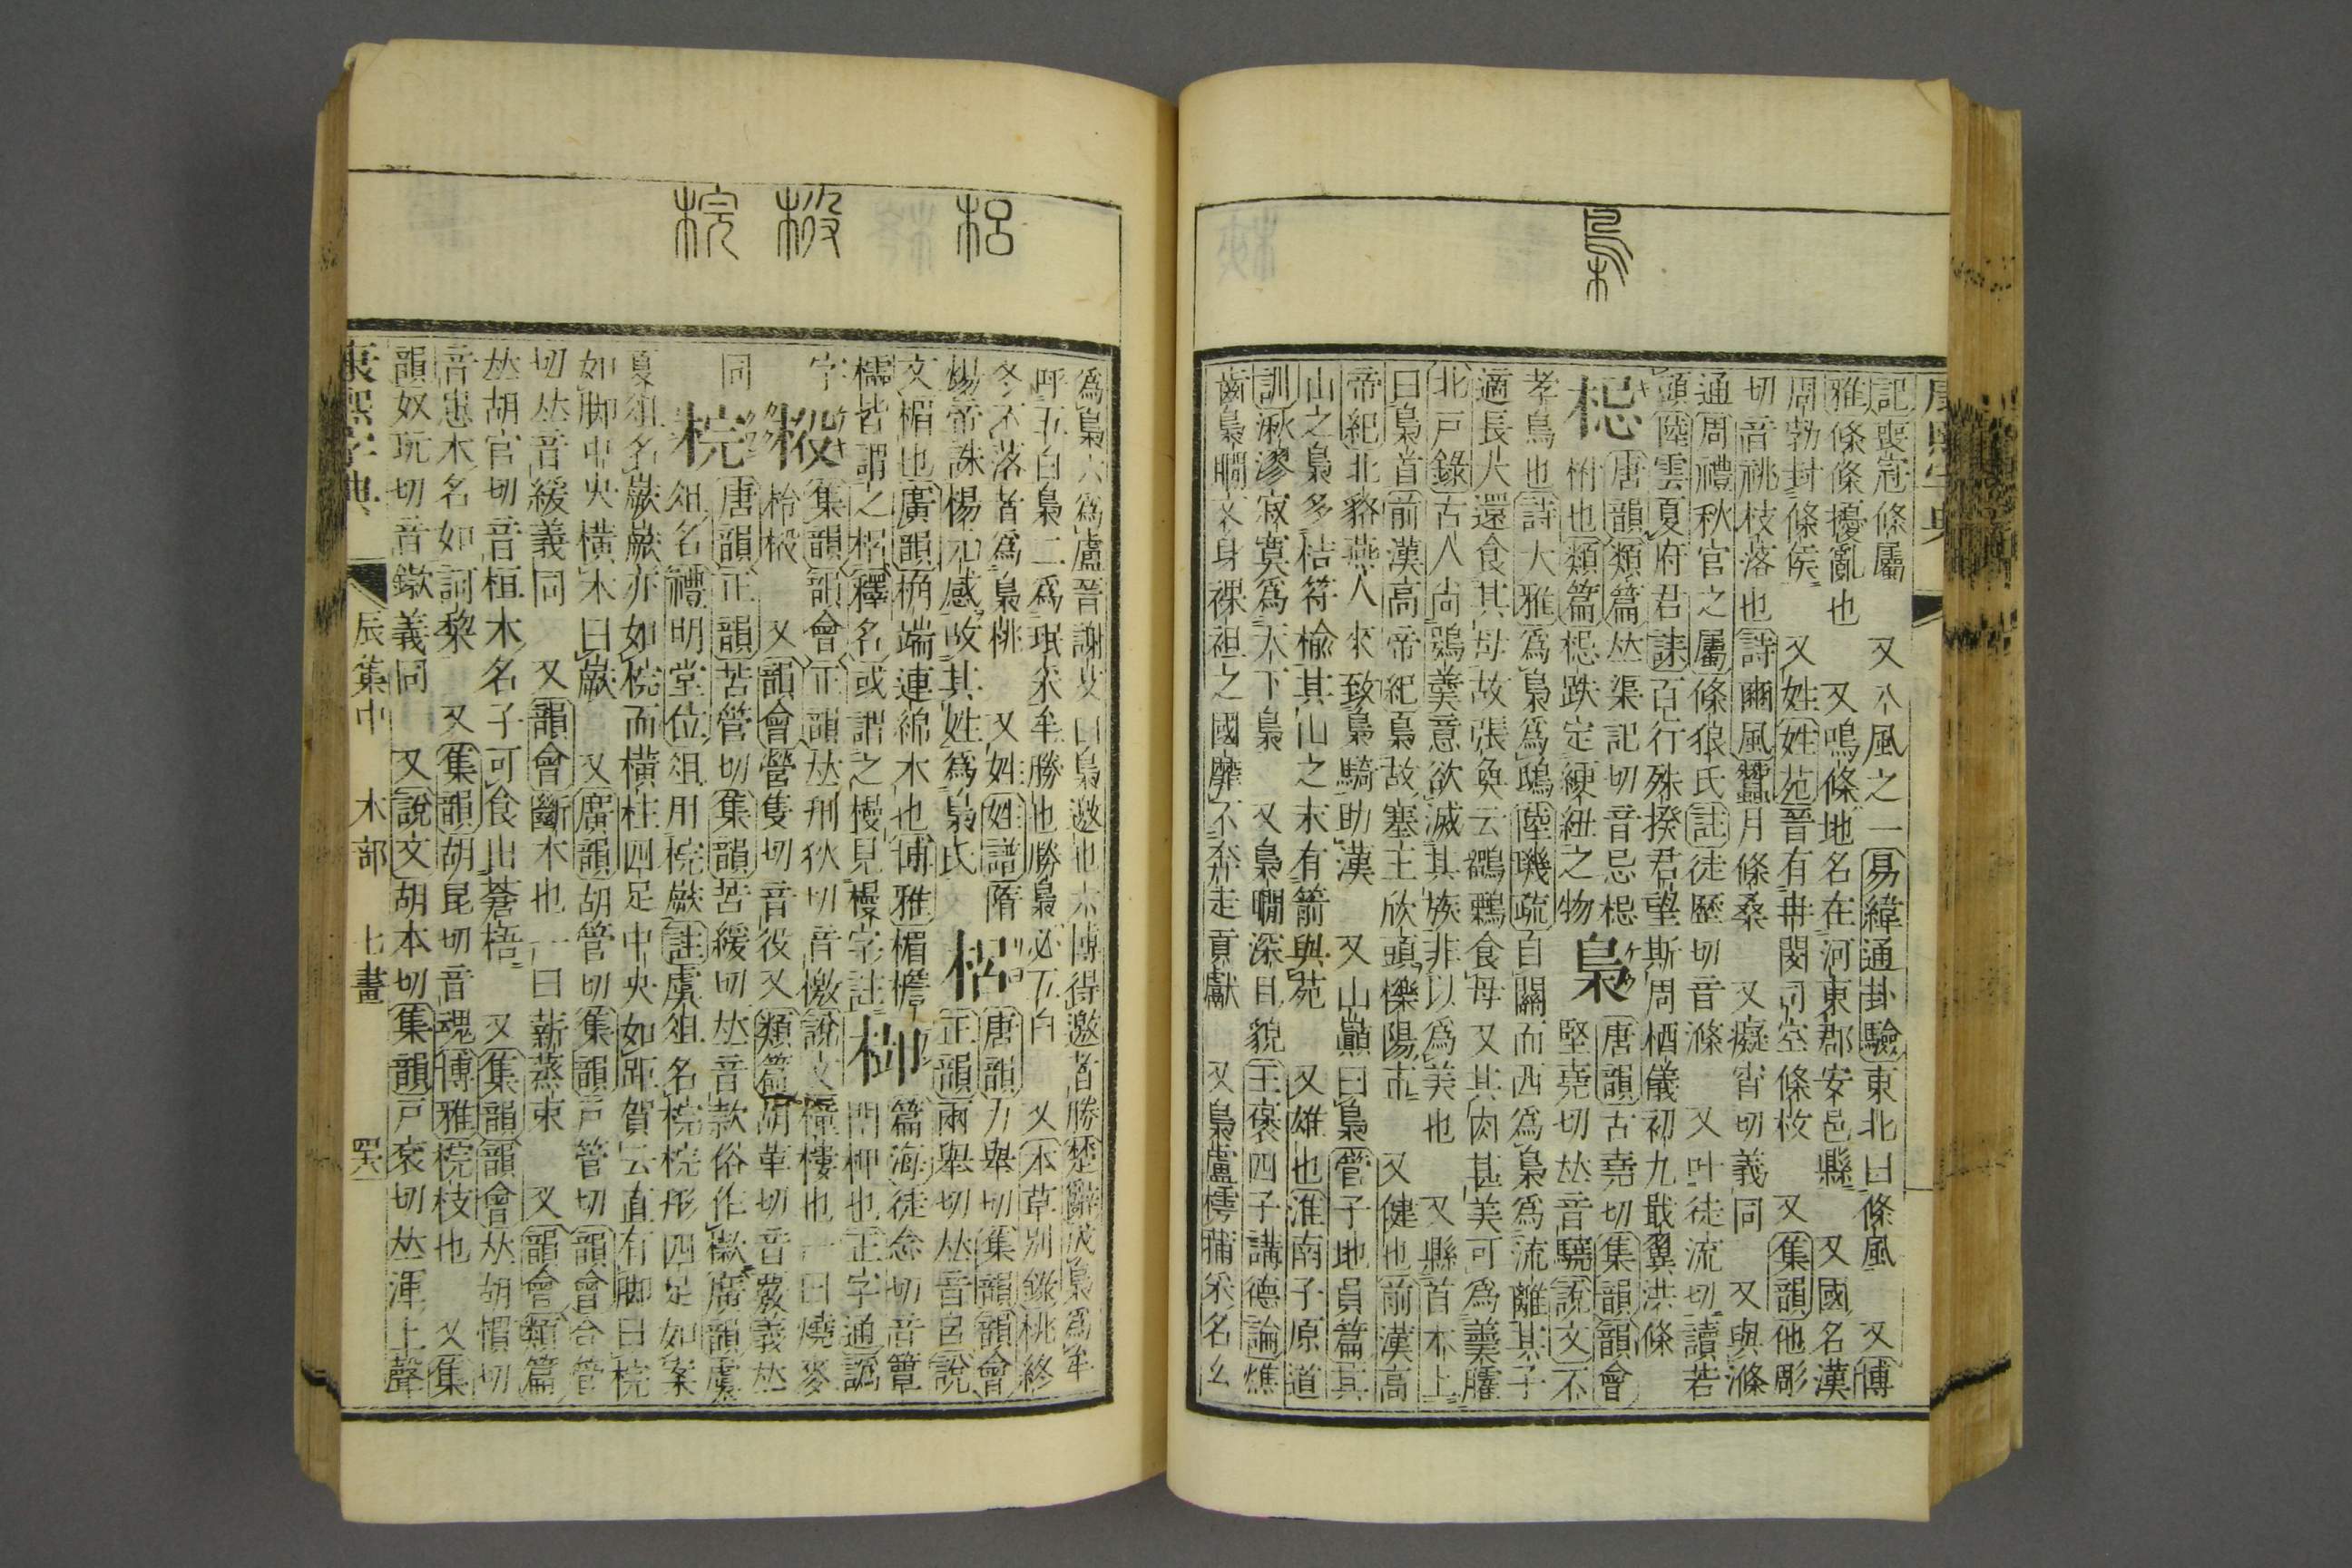 記喪冠條屬　又八風之一易緯通卦驗東北曰條風　又博
雅條條擾亂也　又鳴條地名在河東郡安邑縣　又國名漢
周勃封條侯　又姓姓苑晉有冉閔司空條枚　又集韻他彫
切音祧枝落也詩豳風蠶月條桑　又癡宵切義同　又與滌
通周禮秋官之屬條狼氏註徒歷切音滌　又叶徒流切讀若
頭陸雲夏府君誄百行殊揆君望斯周栖儀初九戢翼洪條
梞
唐韻類篇𠀤渠記切音忌梞
柎也類篇梞跌定綆紐之物
梟
唐韻古堯切集韻韻會
堅堯切𠀤音驍說文不
孝鳥也詩大雅爲梟爲鴟陸璣疏自關而西爲梟爲流離其子
適長大還食其母故張奐云鶹鷅食母又其肉甚美可爲羹臛
北戸錄古人尚鴞羹意欲滅其族非以爲美也　又縣首木上
曰梟首前漢高帝紀梟故塞王欣頭櫟陽市　又健也前漢高
帝紀北貉燕人來致梟騎助漢　又山巓曰梟管子地員篇其
山之梟多桔符楡其山之末有箭與苑　又雄也淮南子原道
訓湫漻寂寞爲天下梟　又梟瞯深目貌王褒四子講德論燋
齒梟瞯文身裸袒之國靡不奔走貢獻　又梟盧樗蒱采名幺
爲梟六爲盧晉謝艾曰梟邀也六博得邀者勝楚辭成梟爲牟
呼五白梟二爲珉采牟勝也勝梟必五白　又本草別錄桃終
冬不落者爲梟桃　又姓姓譜隋
煬帝誅楊𤣥感攺其姓爲梟氏
梠
唐韻力舉切集韻韻會
正韻兩舉切𠀤音呂說
文楣也廣韻桷端連綿木也博雅楣檐
櫺皆謂之梠釋名或謂之槾見槾字註
𣒅
篇海徒念切音簟
閉𣒅也正字通譌
字
㭻
集韻韻會正韻𠀤刑狄切音檄說文橦樓也一曰燒麥
柃㭻　又韻會營隻切音役又類篇胡革切音覈義𠀤
同
梡
唐韻正韻苦管切集韻苦緩切𠀤音款俗作㯘廣韻虞
俎名禮明堂位俎用梡嶡註虞俎名梡梡形四足如案
夏俎名嶡嶡亦如梡而橫柱四足中央如距賀云直有脚曰梡
如脚中央橫木曰嶡　又廣韻胡管切集韻戸管切韻會合管
切𠀤音緩義同　又韻會斷木也一曰薪蒸束　又韻會類篇
𠀤胡官切音桓木名子可食出蒼梧　又集韻韻會𠀤胡慣切
音患木名如訶黎　又集韻胡昆切音魂博雅梡枝也　又集
韻奴玩切音𨫺義同　又說文胡本切集韻戸袞切𠀤渾上聲
康熙字典　辰集中　木部　七畫